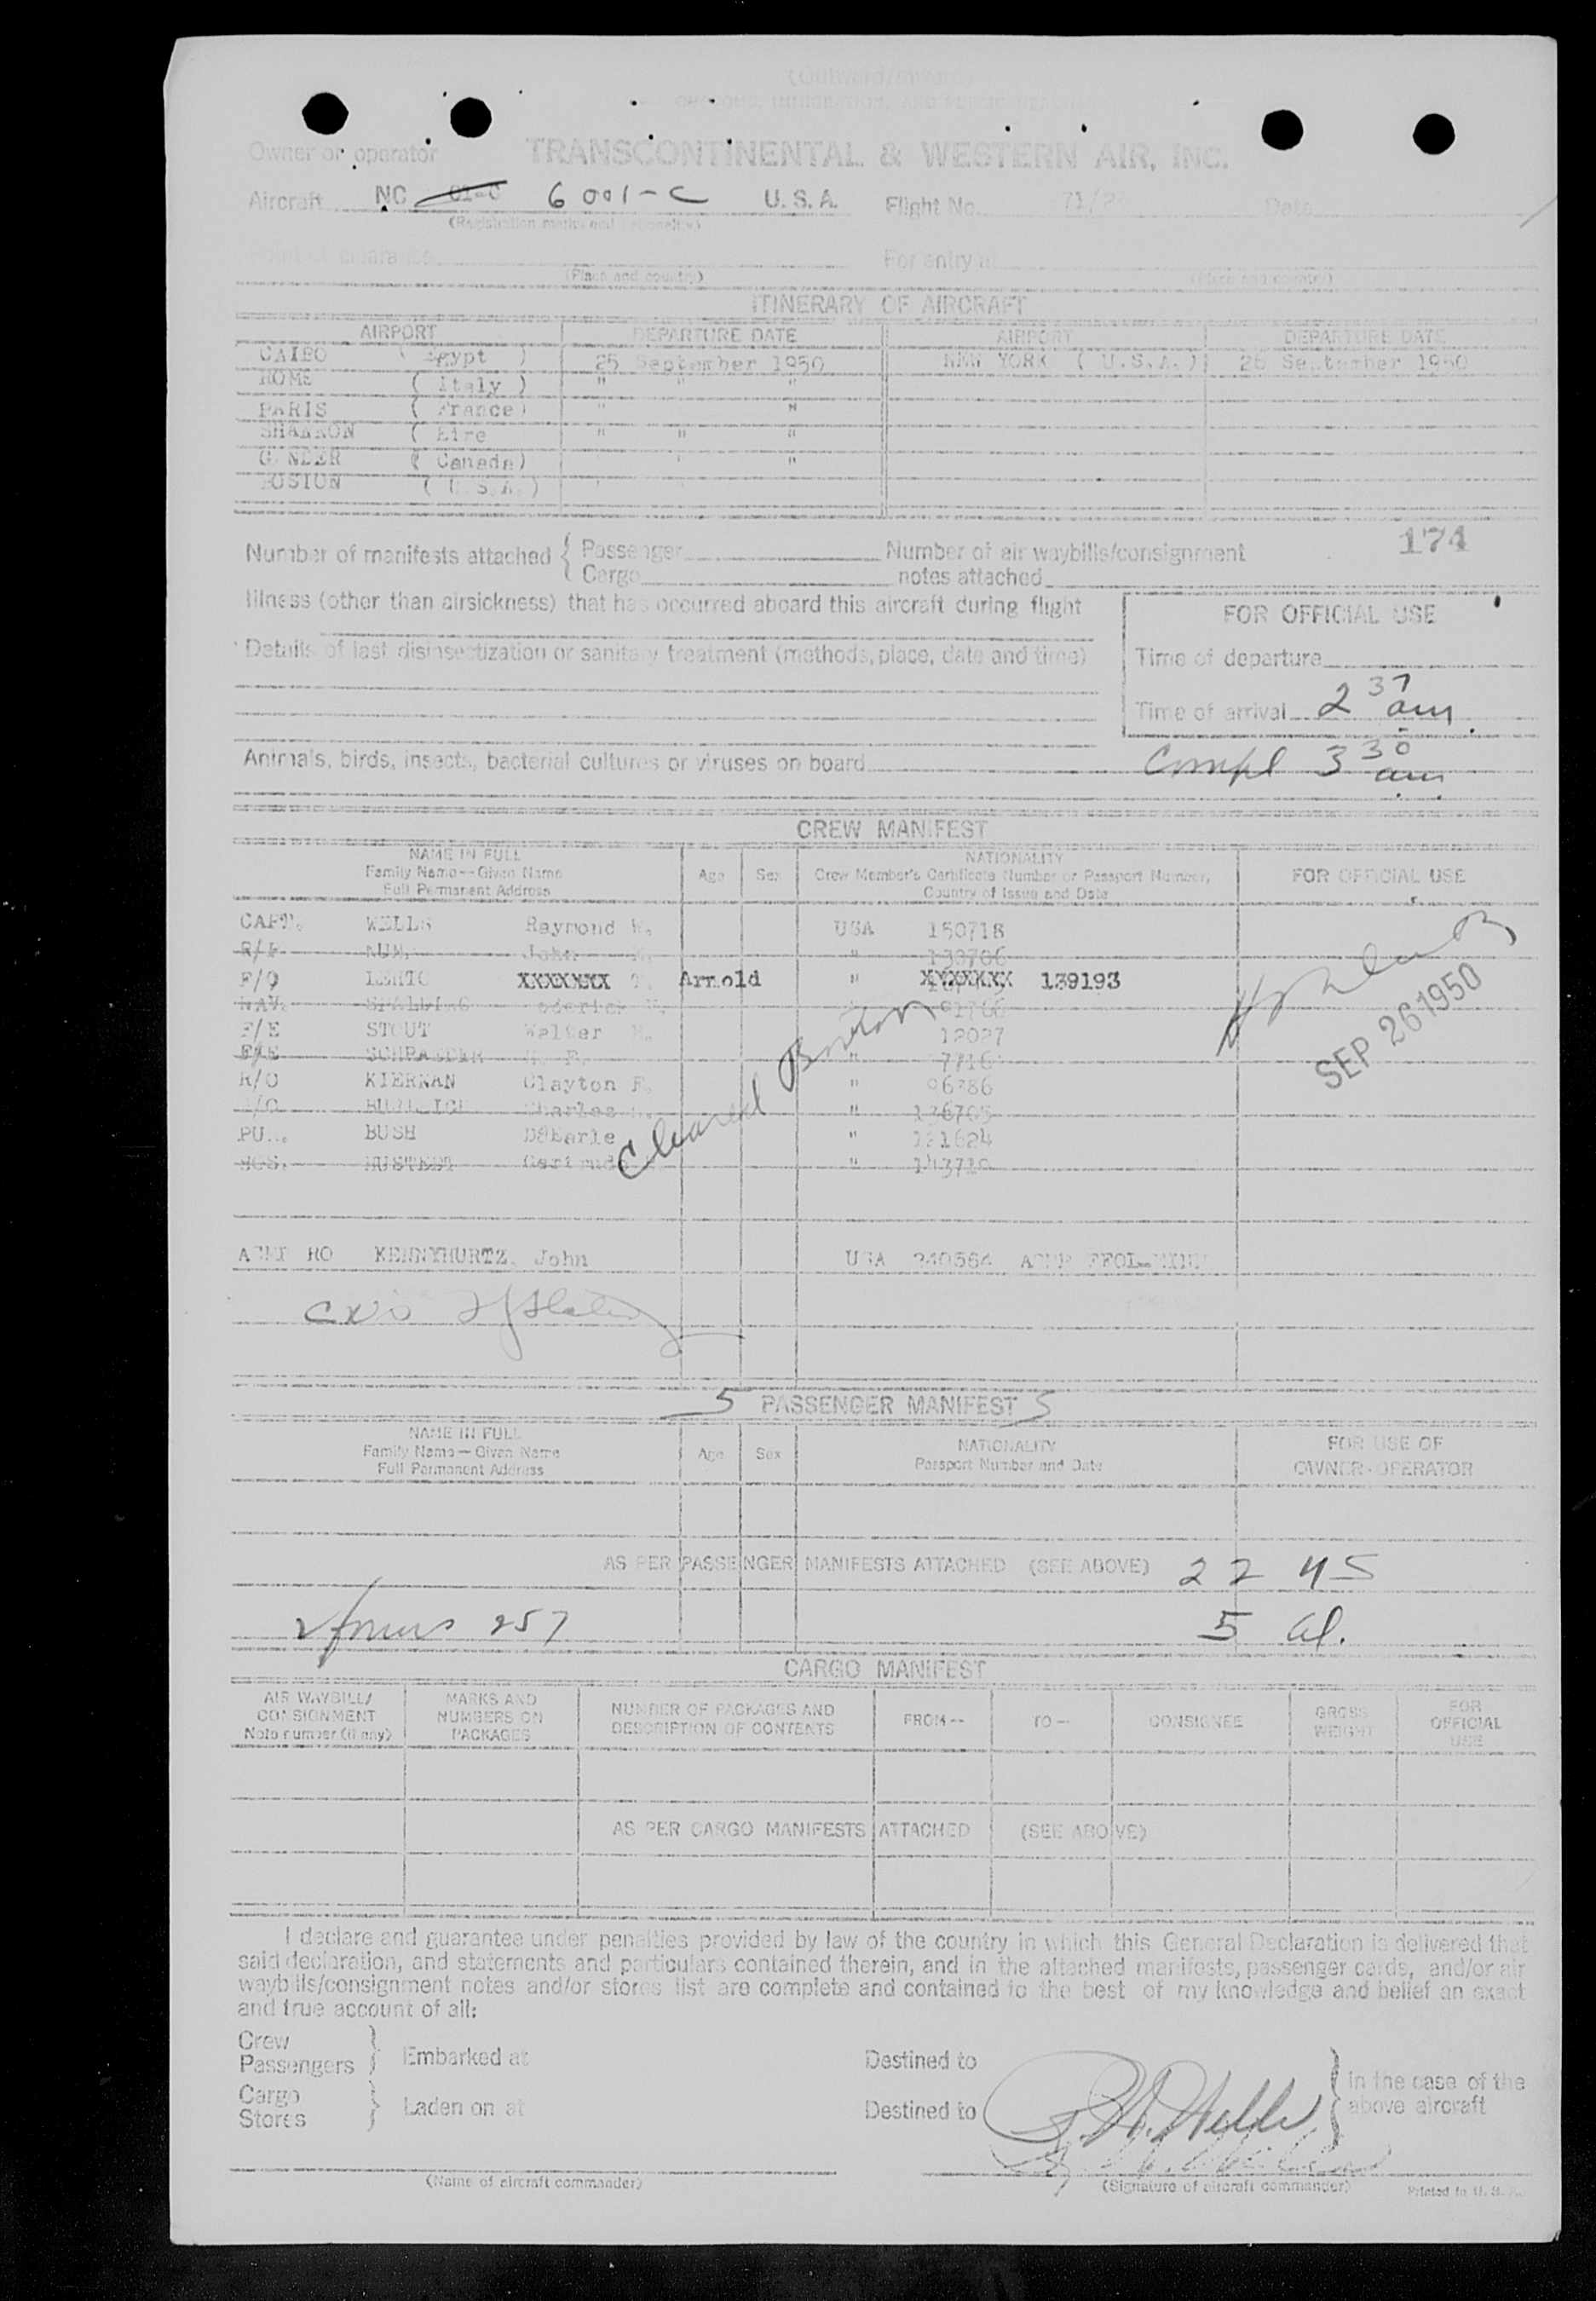 (Outward/Inward)
Owner or operator TRANSCONTINENTAL & WESTERN AIR, INC.
Aircraft NC 01-C 6001-C U.S.A. Flight No. 71/ Date
(Registration marks and nationality)
Point of clearance For entry at
(Place and country) (Place and country)
ITINERARY OF AIRCRAFT
AIRPORT DEPARTURE DATE AIRPORT DEPARTURE DATE
CAIRO ( Egypt ) 25 September 1950 NEW YORK ( U.S.A. ) 26 September 1950
ROME ( Italy ) " " "
PARIS ( France) " "
SHANNON ( Eire " " "
GANDER ( Canada) ' "
BOSTON ( U.S.A.) ' '
174
Number of manifests attached { Passenger Number of air waybills/consignment
Cargo notes attached
Illness (other than airsickness) that has occurred aboard this aircraft during flight
FOR OFFICIAL USE
Details of last disinsectization or sanitary treatment (methods, place, date and time)
Time of departure
Time of arrival 2 37 am
Animals, birds, insects, bacterial cultures or viruses on board
Compl 3 30 am
CREW MANIFEST
NAME IN FULL NATIONALITY
Family Name--Given Name Age Sex Crew Member's Certificate Number or Passport Number, FOR OFFICIAL USE
Full Permanent Address Country of Issue and Date
CAPT. WELLS Raymond H. USA 150718
John 130706
F/O LEHTO XXXXXXX T. Arnold " XXXXXXX 139193
NAV. SPALDING Roderick
F/E STOUT Walter 12027
F/E SCHRAEDER " 7716
R/O KIERNAN Clayton F. " 96386
Charles " 136705
PUR. BUSH DeEarle " 121624
HOS. HUSTEDT Gertrude " 143710
Cleared Boston
SEP 26 1950
RO KENNYHURTZ, John USA 240564
5 PASSENGER MANIFEST 5
NAME IN FULL NATIONALITY FOR USE OF
Family Name — Given Name Age Sex Passport Number and Date OWNER-OPERATOR
Full Permanent Address
AS PER PASSENGER MANIFESTS ATTACHED (SEE ABOVE) 22 US
257 5 al.
CARGO MANIFEST
AIR WAYBILL/ MARKS AND NUMBER OF PACKAGES AND FROM -- TO -- CONSIGNEE GROSS FOR
CONSIGNMENT NUMBERS ON DESCRIPTION OF CONTENTS WEIGHT OFFICIAL
Note number (if any) PACKAGES USE
AS PER CARGO MANIFESTS ATTACHED (SEE ABOVE)
I declare and guarantee under penalties provided by law of the country in which this General Declaration is delivered that
said declaration, and statements and particulars contained therein, and in the attached manifests, passenger cards, and/or air
waybills/consignment notes and/or stores list are complete and contained to the best of my knowledge and belief an exact
and true account of all:
Crew
Passengers } Embarked at Destined to } In the case of the
Cargo above aircraft
Stores } Laden on at Destined to
R. H. Wells
(Name of aircraft commander) (Signature of aircraft commander) Printed in U.S.A.